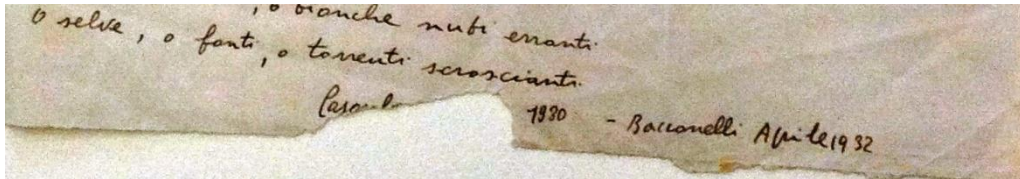 , o bianche nubi erranti
O selve, o fonti, o torrenti scroscianti.
1930 - Bacconelli Aprile 1932